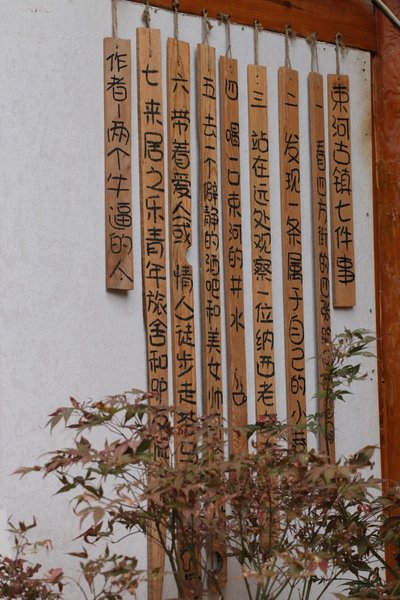 束河古镇七件事
一看四方街的
二发现一条属于自己的小巷
三站在远处观察一位纳西老
四喝一口束河的井水
五去个僻静的酒吧和美女帅
六带着爱人或情人徒步走茶马
七来居之乐青年旅舍和
作者-两个牛逼的人